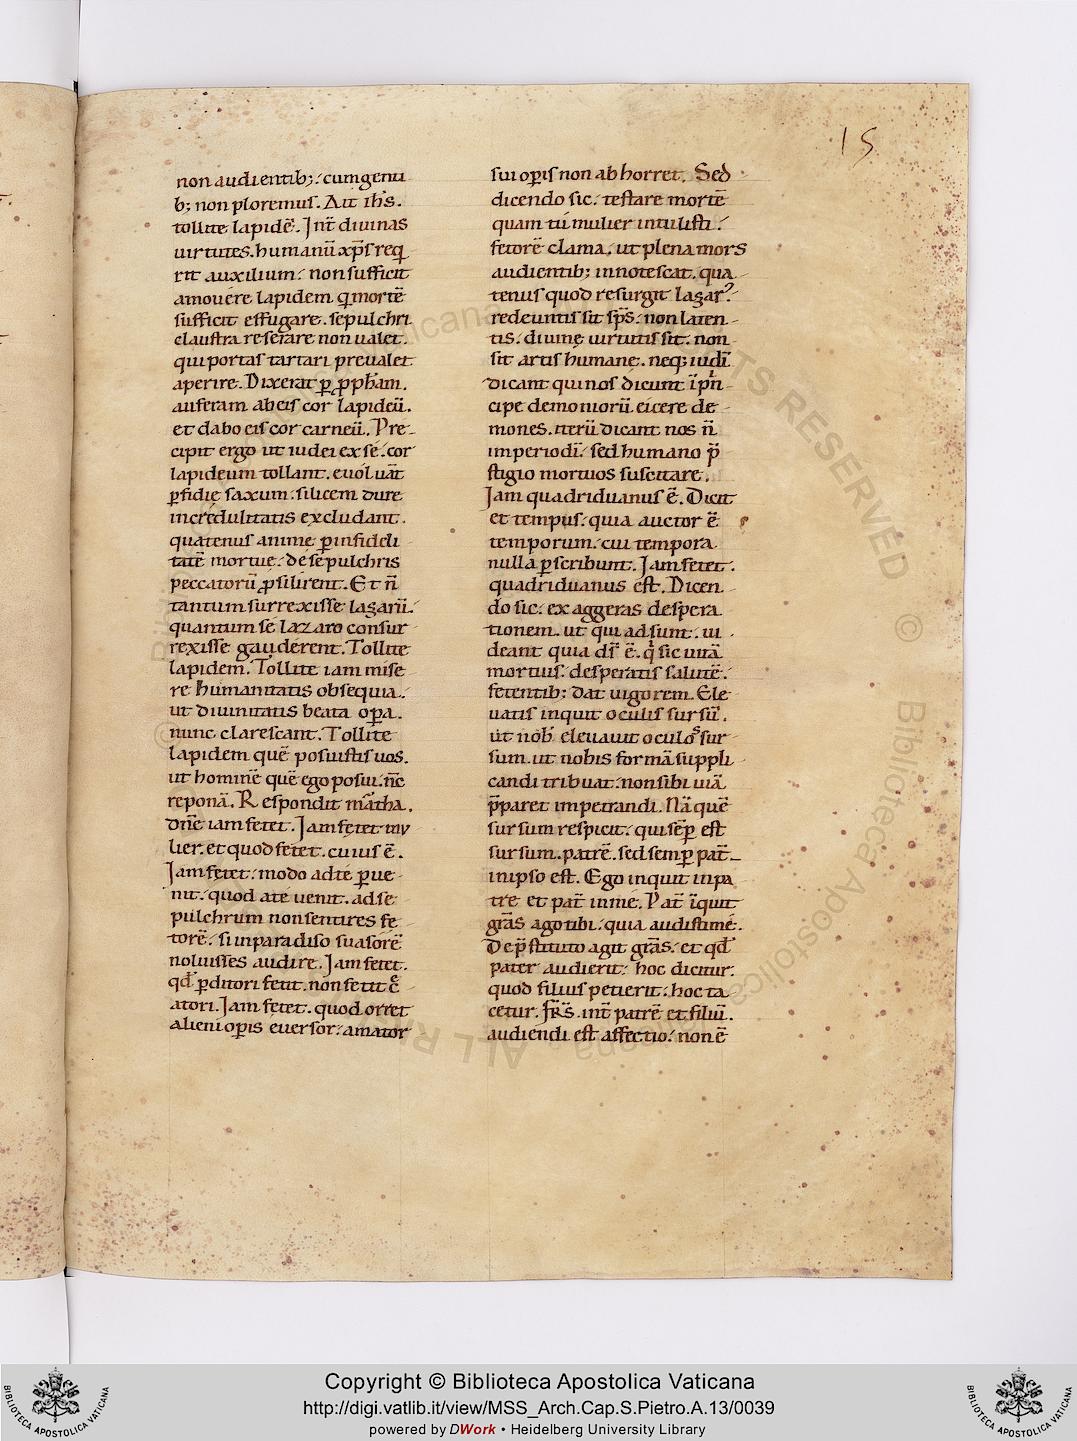 15
non audientib; cum genu
b; non ploremus. Ait ih̅s.
tollite lapidē. Int̅ diuinas
uirtutes. humanū xp̅s req
rit auxilium. non sufficit
amouere lapidem q mortē
sufficit effugare. sepulchri
claustra reserare non ualet.
qui portas tartari preualet
aperire. Dixerat p̱ p̱ph̅am.
auferam ab eis cor lapideū.
et dabo eis cor carneū. Pre-
cipit ergo ut iudei ex se. cor
lapideum tollant. euoluāt
p̱fidie saxum. silicem dure
incredulitatis excludant.
quatenus anime p̱ infideli
tatē mortue. de sepulchris
peccatorū p̱silirent. Et n̅
tantum surrexisse lazarū.
quantum se lazaro consur
rexisse gauderent. Tollite
lapidem. Tollite iam mise
re humanitatis obsequia.
ut diuinitatis beata op̱a.
nunc clarescant. Tollite
lapidem quē posuistis uos.
ut hominē quē ego posui. n̅c
reponā. Respondit martha.
Dn̅e iam fetet. Iam fetet my
lier. et quod fetet. cuius ē.
Iam fetet. modo ad te p̱ue
nit. quod a te uenit. ad se
pulchrum non sentires fe
torē. si in paradiso suasorē
noluisses audire. Iam fetet.
qd̅ p̱ditori fetit. non fetit
atori. Iam fetet. quod orret
alieni op̱is euersor. amator
sui op̱is non abhorret. Sed
dicendo sic. testare mortē
quam tu mulier intulisti.
fetorē clama. ut plena mors
audientib; innotescat. qua
tenus quod resurgit lazar᾽
redeuntis sit sp̅s. non laten-
tis. diuine uirtutis sit. non
sit artis humane. neq; iudi̅
dicant qui nos dicunt ī pn̅-
cipe demoniorū eicere de
mones. iterū dicant nos n̅
imperio di̅. sed humano p̅
stigio mortuos suscitare.
Iam quadriduanus ē. Dicit
et tempus. quia auctor ē
temporum. cui tempora
nulla p̱scribunt. Iam fetet.
quadriduanus est. Dicen
do sic. exaggeras despera
tionem. ut qui adsunt. ui
deant quia ds̅ ē. q̇ sic uitā
mortuis. desperatis salutē.
fetentib; dat uigorem. Ele
uatis inquit oculis sursū.
ut nob̅ eleuauit oculos sur
sum. ut nobis formā suppli
candi tribuat. non sibi uiā
p̅paret impetrandi. Nā quē
sursum respicit. qui sēp̱ est
sursum. patrē. sed semp̱ pat̅
in ipso est. Ego inquit in pa
tre et pat̅ in me. Pat̅ īquit
gr̅as ago tibi. quia audisti me.
De p̅stituto agit gr̅as. et qd̅
pater audierit. hoc dicitur.
quod filius petierit. hoc ta
cetur. Fr̅s. int̅ patrē et filiū.
audiendi est affectio. non ē
Copyright © Biblioteca Apostolica Vaticana
http://digi.vatlib.it/view/MSS_Arch.Cap.S.Pietro.A.13/0039
powered by DWork • Heidelberg University Library